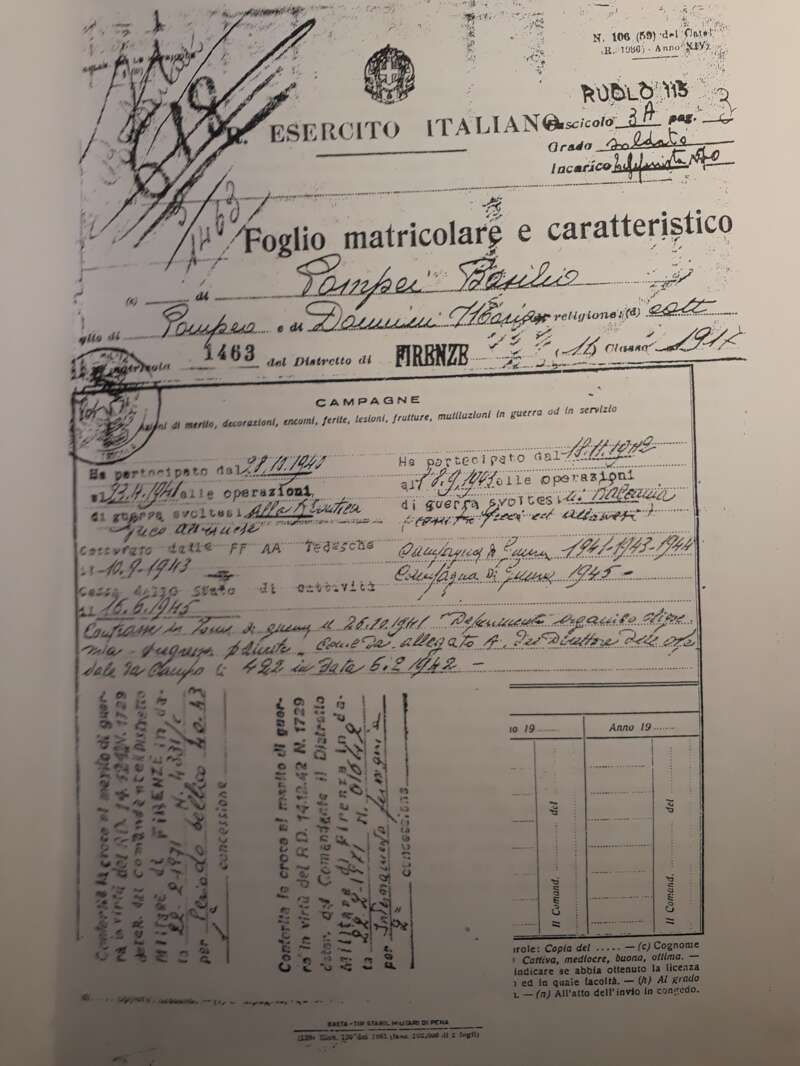 N. 106 (59) del Catal.
(R. 1936) - Anno XIV
RUOLO 113
R. ESERCITO ITALIANO
Fascicolo 3A pag. 2
Grado soldato
Incarico
1463
Foglio matricolare e caratteristico
(c) di Pompei Basilio
figlio di Pompeo e di religione: (d) catt
matricola 1463 del Distretto di FIRENZE (11) Classe 1917
CAMPAGNE
azioni di merito, decorazioni, encomi, ferite, lesioni, fratture, mutilazioni in guerra od in servizio
Ha partecipato dal 28.10.1940
al 23.4.1941 alle operazioni
di guerra svoltesi alla frontiera
greco albanese
Catturato dalle FF AA Tedesche
il 10.9.1943
Cessa dallo stato di cattività
il 16.6.1945
Ha partecipato dal 18.11.1942
al 8.9.1943 alle operazioni
di guerra svoltesi in Balcania
Campagna di Guerra 1941-1943-1944
Campagna di Guerra 1945 -
Contrasse in zona di guerra il 26.10.1941 Deperimento organico
allegato A, del Direttore dello ospe
dale da Campo n: 422 in data 6.2.1942 -
Conferita la croce al merito di guer-
ra in virtù del R.D. 14.12.42 N. 1729
deter. del Comandante il Distretto
Militare di FIRENZE in da-
ta 22-2-1971 N.
per Periodo bellico 40-43
1ª concessione
Conferita la croce al merito di guer-
ra in virtù del R.D. 14.12.42 N. 1729
deter. del Comandante il Distretto
militare di Firenze in da-
ta 22-2-1971 N.
per Internamento Germania
2ª concessione
Anno 19
Anno 19
Il Comand. del
Il Comand. del
parole: Copia del ..... — (c) Cognome
Cattiva, mediocre, buona, ottima. —
indicare se abbia ottenuto la licenza
ed in quale facoltà. — (h) Al grado
— (n) All'atto dell'invio in congedo.
GAETA - TIP. STABIL. MILITARI DI PENA